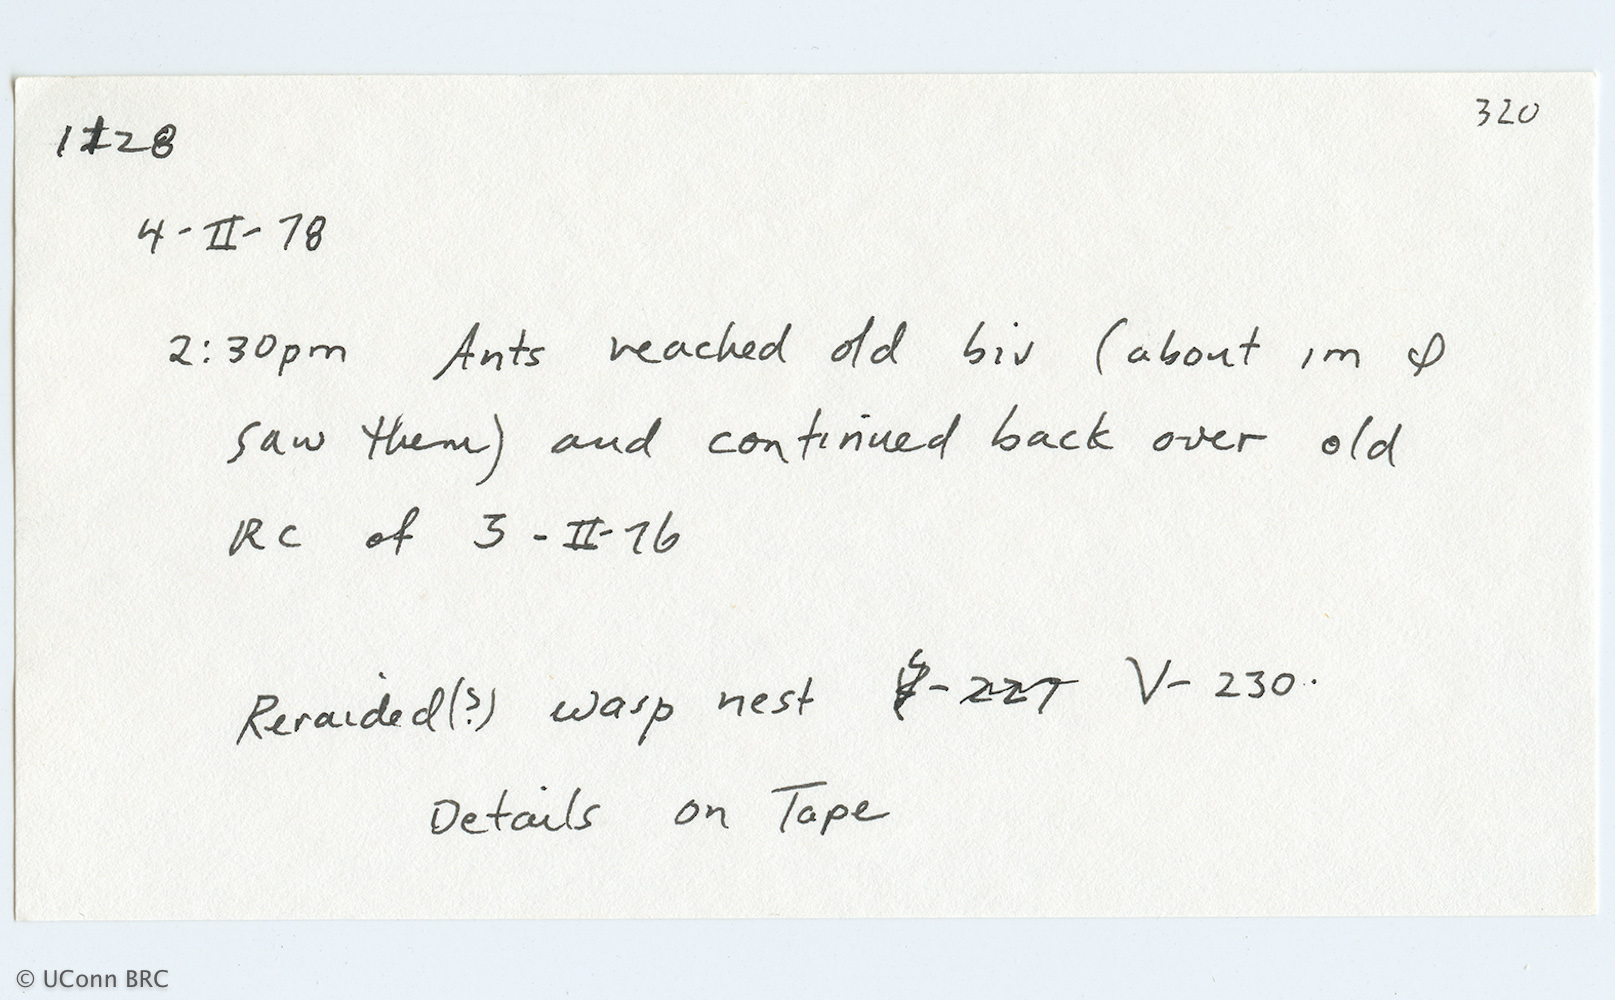 320
1128
4-II-78
2:30pm Ants reached old biv (about 1m &
saw them) and continued back over old
RC of 3-II-76
Reraided(?) wasp nest V-227 V-230.
Details on Tape
© UConn BRC